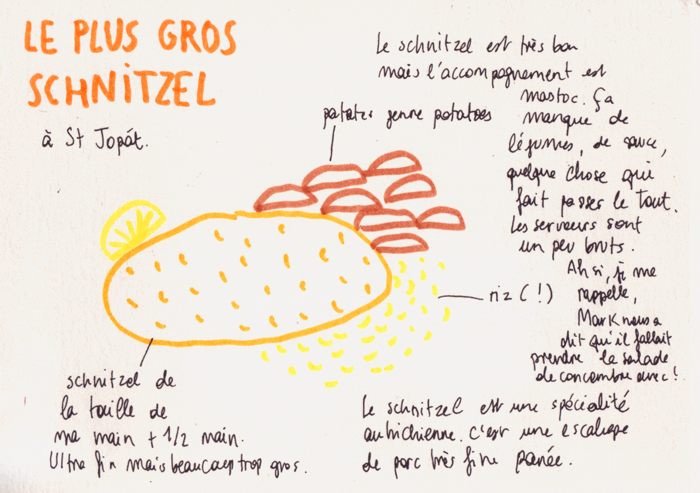 LE PLUS GROS
SCHNITZEL
à St Jopát.
Le schnitzel est très bon
mais l'accompagnement est
mastoc. Ça
manque de
légumes, de sauce,
quelque chose qui
fait passer le tout.
Les serveurs sont
un peu bruts.
Ah si, je me
rappelle,
Mark nous a
dit qu'il fallait
prendre la salade
de concombre avec!
patates genre potatoes
riz (!)
schnitzel de
la taille de
ma main + 1/2 main.
Ultra fin mais beaucoup trop gros.
Le schnitzel est une spécialité
autrichienne. C'est une escalope
de porc très fine panée.